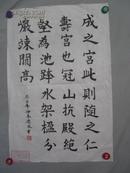 成之宫此則随之仁
壽宫也冠山抗殿絶
壑為池跨水架楹分
巖竦闕高